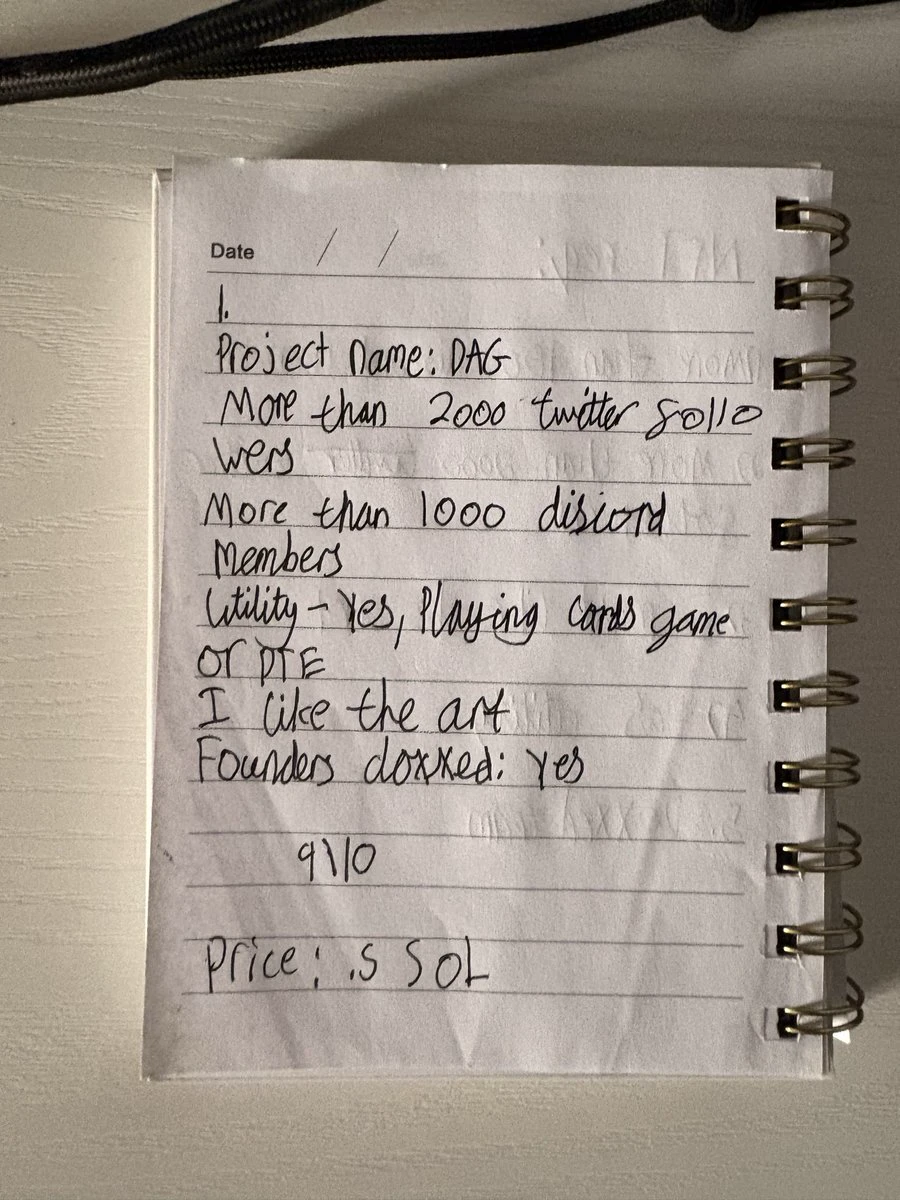 Date / /
1.
Project name: DAG
More than 2000 twitter follo
wers
More than 1000 discord
Members
Utility - Yes, Playing cards game
or PTE
I like the art
Founders doxxed: Yes
9\10
Price: .5 SOL